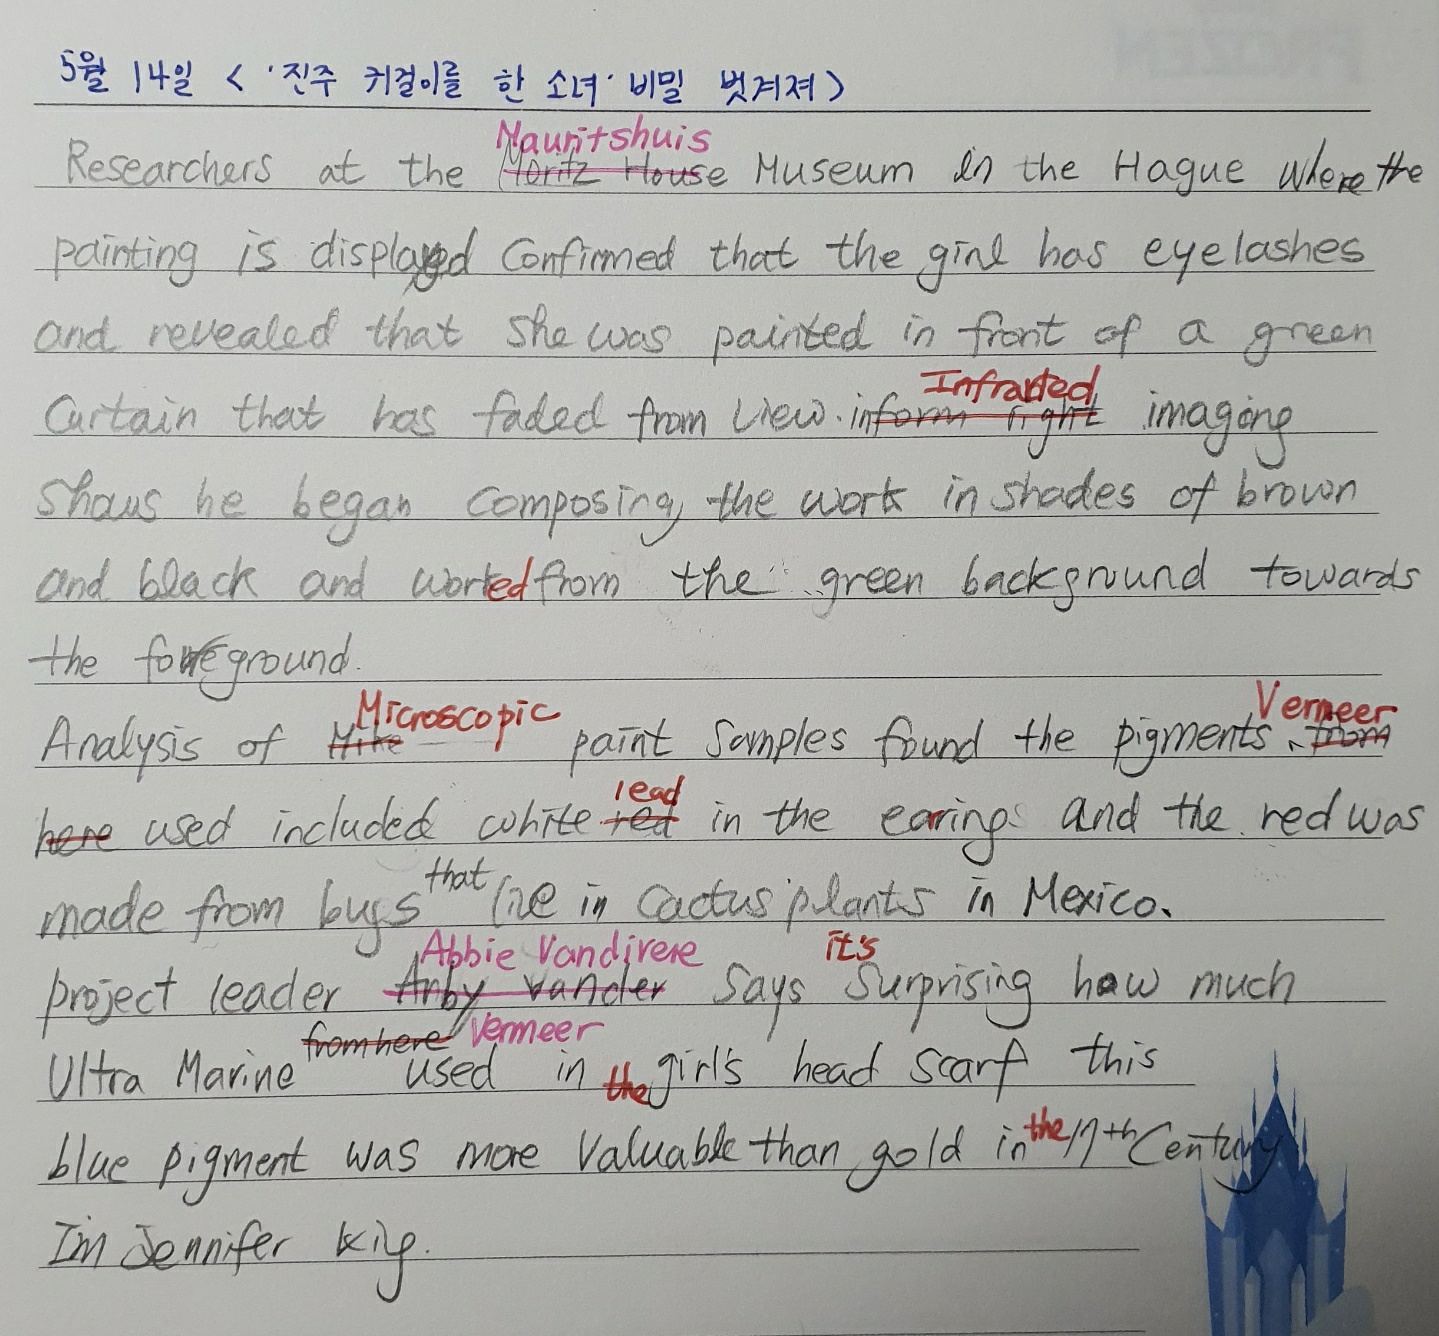 5월 14일 < '진주 귀걸이를 한 소녀' 비밀 벗겨져 >
Mauritshuis
Researchers at the Moritz House Museum in the Hague where the
painting is displayed confirmed that the girl has eyelashes
and revealed that she was painted in front of a green
Infrarted
Curtain that has faded from view. inform right imaging
Shows he began composing the work in shades of brown
and black and worked from the green background towards
the foreground.
Microscopic Vermeer
Analysis of Mike paint samples found the pigments, from
lead
here used included white red in the earings and the red was
that
made from bugs live in cactus plants in Mexico.
Abbie Vandivere it's
project leader Anby Vander says surprising how much
from here Vermeer
Ultra Marine used in the girl's head scarf this
blue pigment was more valuable than gold in the 17th Century
I'm Jennifer King.
FROZEN